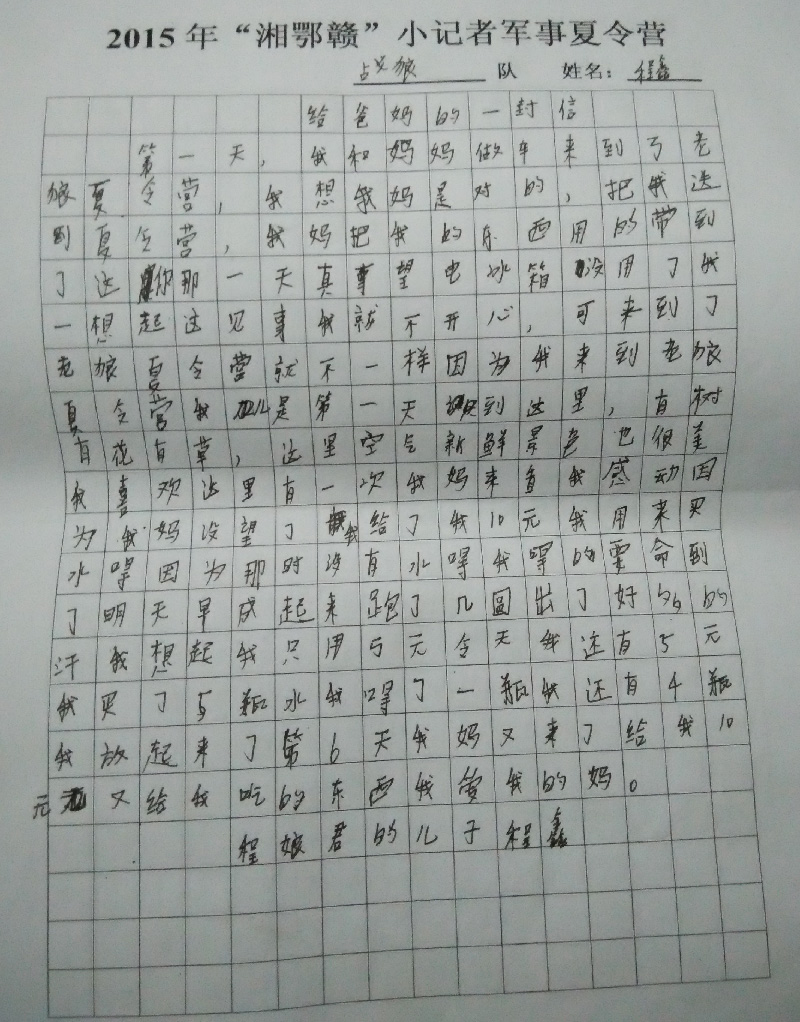 2015年“湘鄂赣”小记者军事夏令营
战狼 队 姓名：程鑫
给爸妈的一封信
第一天，我和妈妈做车来到了老
狼夏令营，我想我妈是对的，把我送
到夏令营，我妈把我的东西用的带到
了这你那一天真事望电冰箱没用了我
一想起这见事我就不开心，可来到了
老狼夏令营就不一样因为我来到老狼
夏令营我是第一天到这里，有树
有花有草，这里空气新鲜景色也很美
我喜欢这里有一次我妈来看我感动因
为我妈没望了我给了我10元我用来买
水喝因为那时没有水喝我喝的要命到
了明天早成起来跑了几圆出了好多的
汗我想起我只用5元令天我还有5元
我买了5瓶水我喝了一瓶我还有4瓶
我放起来了第6天我妈又来了给我10
元又给我吃的东西我爱我的妈。
程娘君的儿子程鑫